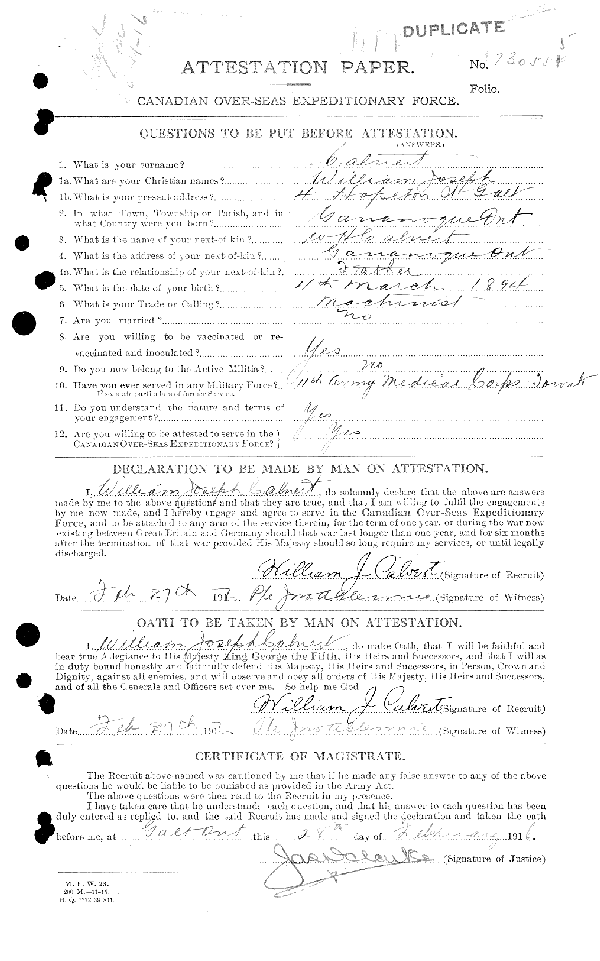 DUPLICATE
ATTESTATION PAPER.
No.
Folio.
CANADIAN OVER-SEAS EXPEDITIONARY FORCE.
QUESTIONS TO BE PUT BEFORE ATTESTATION.
(ANSWERS)
1. What is your surname? Calvert
1a. What are your Christian names? William Joseph
1b. What is your present address? 4 St Galt
2. In what Town, Township or Parish, and in
what Country were you born? Gananoque Ont
3. What is the name of your next-of-kin? Calvert
4. What is the address of your next-of-kin? Gananoque Ont
4a. What is the relationship of your next-of-kin? Father
5. What is the date of your birth? 4th March 1894
6. What is your Trade or Calling? Machinist
7. Are you married? no
8. Are you willing to be vaccinated or re-
vaccinated and inoculated? Yes
9. Do you now belong to the Active Militia? no
10. Have you ever served in any Military Force? Army Medical Corps
If so, state particulars of former Service.
11. Do you understand the nature and terms of
your engagement? Yes
12. Are you willing to be attested to serve in the
CANADIAN OVER-SEAS EXPEDITIONARY FORCE? Yes
DECLARATION TO BE MADE BY MAN ON ATTESTATION.
I, William Joseph Calvert, do solemnly declare that the above are answers
made by me to the above questions and that they are true, and that I am willing to fulfil the engagements
by me now made, and I hereby engage and agree to serve in the Canadian Over-Seas Expeditionary
Force, and to be attached to any arm of the service therein, for the term of one year, or during the war now
existing between Great Britain and Germany should that war last longer than one year, and for six months
after the termination of that war provided His Majesty should so long require my services, or until legally
discharged.
William J Calvert (Signature of Recruit)
Date Feb 27th 191 Pte (Signature of Witness)
OATH TO BE TAKEN BY MAN ON ATTESTATION.
I, William Joseph Calvert, do make Oath, that I will be faithful and
bear true Allegiance to His Majesty King George the Fifth, His Heirs and Successors, and that I will as
in duty bound honestly and faithfully defend His Majesty, His Heirs and Successors, in Person, Crown and
Dignity, against all enemies, and will observe and obey all orders of His Majesty, His Heirs and Successors,
and of all the Generals and Officers set over me. So help me God.
William J Calvert (Signature of Recruit)
Date Feb 27th 191 Pte (Signature of Witness)
CERTIFICATE OF MAGISTRATE.
The Recruit above named was cautioned by me that if he made any false answer to any of the above
questions he would be liable to be punished as provided in the Army Act.
The above questions were then read to the Recruit in my presence.
I have taken care that he understands each question, and that his answer to each question has been
duly entered as replied to, and the said Recruit has made and signed the declaration and taken the oath
before me, at Galt Ont this 28th day of February 1916
(Signature of Justice)
M. F. W. 23.